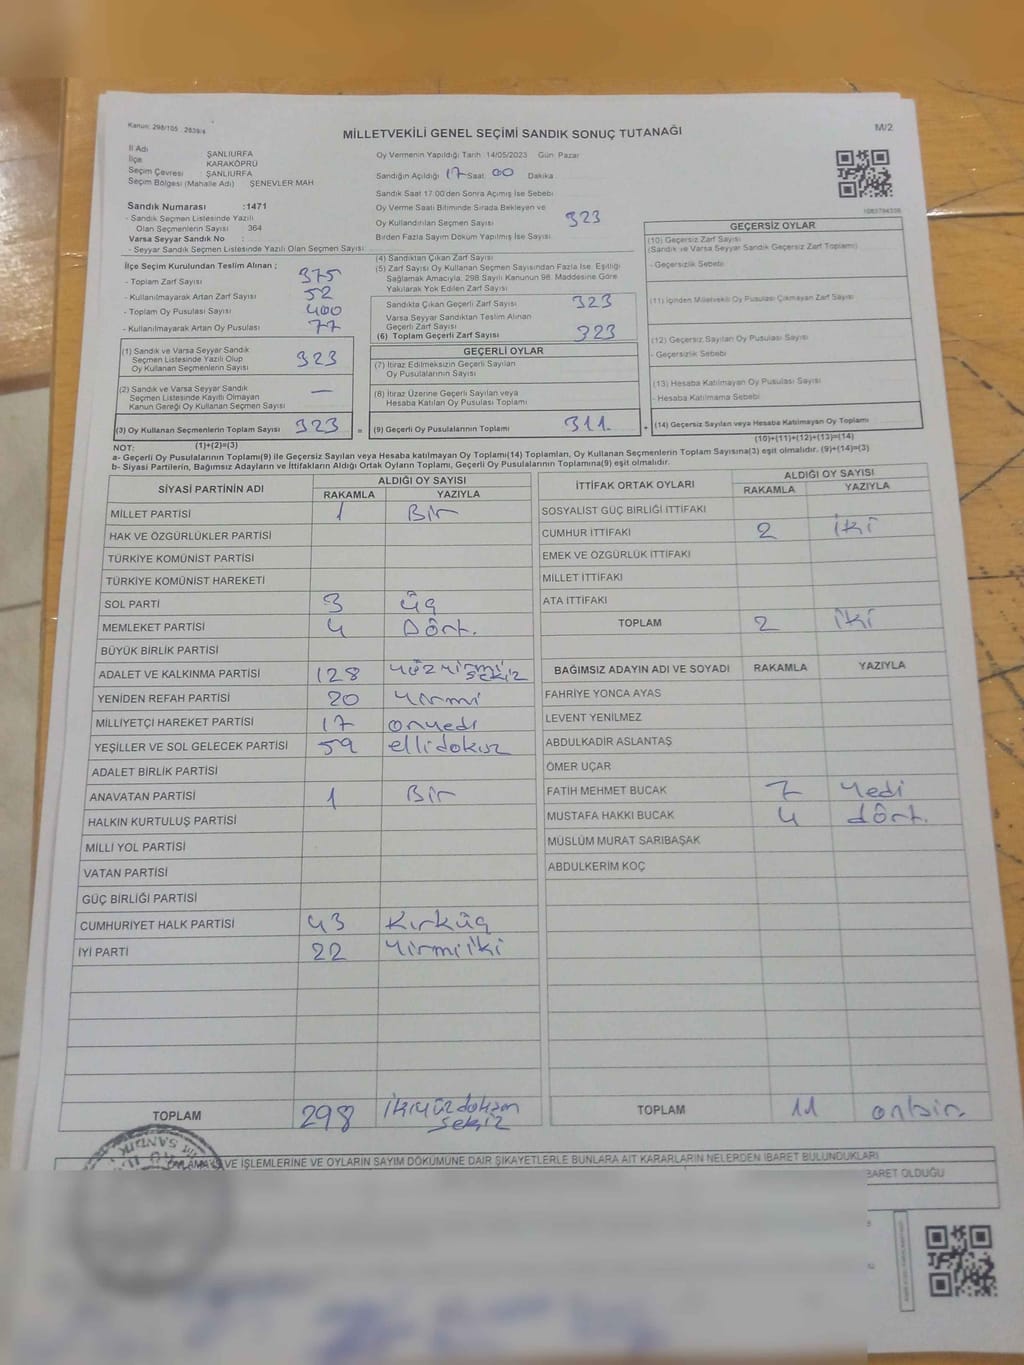 Kanun: 298/105 2839/4
MİLLETVEKİLİ GENEL SEÇİMİ SANDIK SONUÇ TUTANAĞI
M/2
İl Adı : ŞANLIURFA
İlçe : KARAKÖPRÜ
Seçim Çevresi : ŞANLIURFA
Seçim Bölgesi (Mahalle Adı) : ŞENEVLER MAH
Sandık Numarası :1471
- Sandık Seçmen Listesinde Yazılı
Olan Seçmenlerin Sayısı : 364
Varsa Seyyar Sandık No :
- Seyyar Sandık Seçmen Listesinde Yazılı Olan Seçmen Sayısı :
Oy Vermenin Yapıldığı Tarih :14/05/2023 Gün: Pazar
Sandığın Açıldığı 17 Saat 00 Dakika
Sandık Saat 17.00'den Sonra Açılmış İse Sebebi
Oy Verme Saati Bitiminde Sırada Bekleyen ve
Oy Kullandırılan Seçmen Sayısı 323
Birden Fazla Sayım Döküm Yapılmış İse Sayısı
İlçe Seçim Kurulundan Teslim Alınan ;
- Toplam Zarf Sayısı : 375
- Kullanılmayarak Artan Zarf Sayısı : 52
- Toplam Oy Pusulası Sayısı : 400
- Kullanılmayarak Artan Oy Pusulası : 77
(1) Sandık ve Varsa Seyyar Sandık
Seçmen Listesinde Yazılı Olup
Oy Kullanan Seçmenlerin Sayısı : 323
(2) Sandık ve Varsa Seyyar Sandık
Seçmen Listesinde Kayıtlı Olmayan
Kanun Gereği Oy Kullanan Seçmen Sayısı : —
(3) Oy Kullanan Seçmenlerin Toplam Sayısı : 323
(1)+(2)=(3)
(4) Sandıktan Çıkan Zarf Sayısı
(5) Zarf Sayısı Oy Kullanan Seçmen Sayısından Fazla İse, Eşitliği
Sağlamak Amacıyla, 298 Sayılı Kanunun 98. Maddesine Göre
Yakılarak Yok Edilen Zarf Sayısı
Sandıkta Çıkan Geçerli Zarf Sayısı : 323
Varsa Seyyar Sandıktan Teslim Alınan
Geçerli Zarf Sayısı
(6) Toplam Geçerli Zarf Sayısı : 323
GEÇERLİ OYLAR
(7) İtiraz Edilmeksizin Geçerli Sayılan
Oy Pusulalarının Sayısı
(8) İtiraz Üzerine Geçerli Sayılan veya
Hesaba Katılan Oy Pusulası Toplamı
= (9) Geçerli Oy Pusulalarının Toplamı : 311.
GEÇERSİZ OYLAR
(10) Geçersiz Zarf Sayısı
(Sandık ve Varsa Seyyar Sandık Geçersiz Zarf Toplamı)
- Geçersizlik Sebebi :
(11) İçinden Milletvekili Oy Pusulası Çıkmayan Zarf Sayısı
(12) Geçersiz Sayılan Oy Pusulası Sayısı
- Geçersizlik Sebebi :
(13) Hesaba Katılmayan Oy Pusulası Sayısı
- Hesaba Katılmama Sebebi :
+ (14) Geçersiz Sayılan veya Hesaba Katılmayan Oy Toplamı
(10)+(11)+(12)+(13)=(14)
NOT:
a- Geçerli Oy Pusulalarının Toplamı(9) ile Geçersiz Sayılan veya Hesaba katılmayan Oy Toplamı(14) Toplamları, Oy Kullanan Seçmenlerin Toplam Sayısına(3) eşit olmalıdır. (9)+(14)=(3)
b- Siyasi Partilerin, Bağımsız Adayların ve İttifakların Aldığı Ortak Oyların Toplamı, Geçerli Oy Pusulalarının Toplamına(9) eşit olmalıdır.
SİYASİ PARTİNİN ADI ALDIĞI OY SAYISI
RAKAMLA YAZIYLA
MİLLET PARTİSİ 1 Bir
HAK VE ÖZGÜRLÜKLER PARTİSİ
TÜRKİYE KOMÜNİST PARTİSİ
TÜRKİYE KOMÜNİST HAREKETİ
SOL PARTİ 3 üç
MEMLEKET PARTİSİ 4 Dört.
BÜYÜK BİRLİK PARTİSİ
ADALET VE KALKINMA PARTİSİ 128 yüzyirmi sekiz
YENİDEN REFAH PARTİSİ 20 yirmi
MİLLİYETÇİ HAREKET PARTİSİ 17 onyedi
YEŞİLLER VE SOL GELECEK PARTİSİ 59 ellidokuz
ADALET BİRLİK PARTİSİ
ANAVATAN PARTİSİ 1 Bir
HALKIN KURTULUŞ PARTİSİ
MİLLİ YOL PARTİSİ
VATAN PARTİSİ
GÜÇ BİRLİĞİ PARTİSİ
CUMHURİYET HALK PARTİSİ 43 Kırküç
İYİ PARTİ 22 Yirmiiki
TOPLAM 298 ikiyüzdoksan sekiz
İTTİFAK ORTAK OYLARI ALDIĞI OY SAYISI
RAKAMLA YAZIYLA
SOSYALİST GÜÇ BİRLİĞİ İTTİFAKI
CUMHUR İTTİFAKI 2 iki
EMEK VE ÖZGÜRLÜK İTTİFAKI
MİLLET İTTİFAKI
ATA İTTİFAKI
TOPLAM 2 iki
BAĞIMSIZ ADAYIN ADI VE SOYADI RAKAMLA YAZIYLA
FAHRİYE YONCA AYAS
LEVENT YENİLMEZ
ABDULKADİR ASLANTAŞ
ÖMER UÇAR
FATİH MEHMET BUCAK 7 yedi
MUSTAFA HAKKI BUCAK 4 dört.
MÜSLÜM MURAT SARIBAŞAK
ABDULKERİM KOÇ
TOPLAM 11 onbir
VE İŞLEMLERİNE VE OYLARIN SAYIM DÖKÜMÜNE DAİR ŞİKAYETLERLE BUNLARA AİT KARARLARIN NELERDEN İBARET BULUNDUKLARI
BARET OLDUĞU